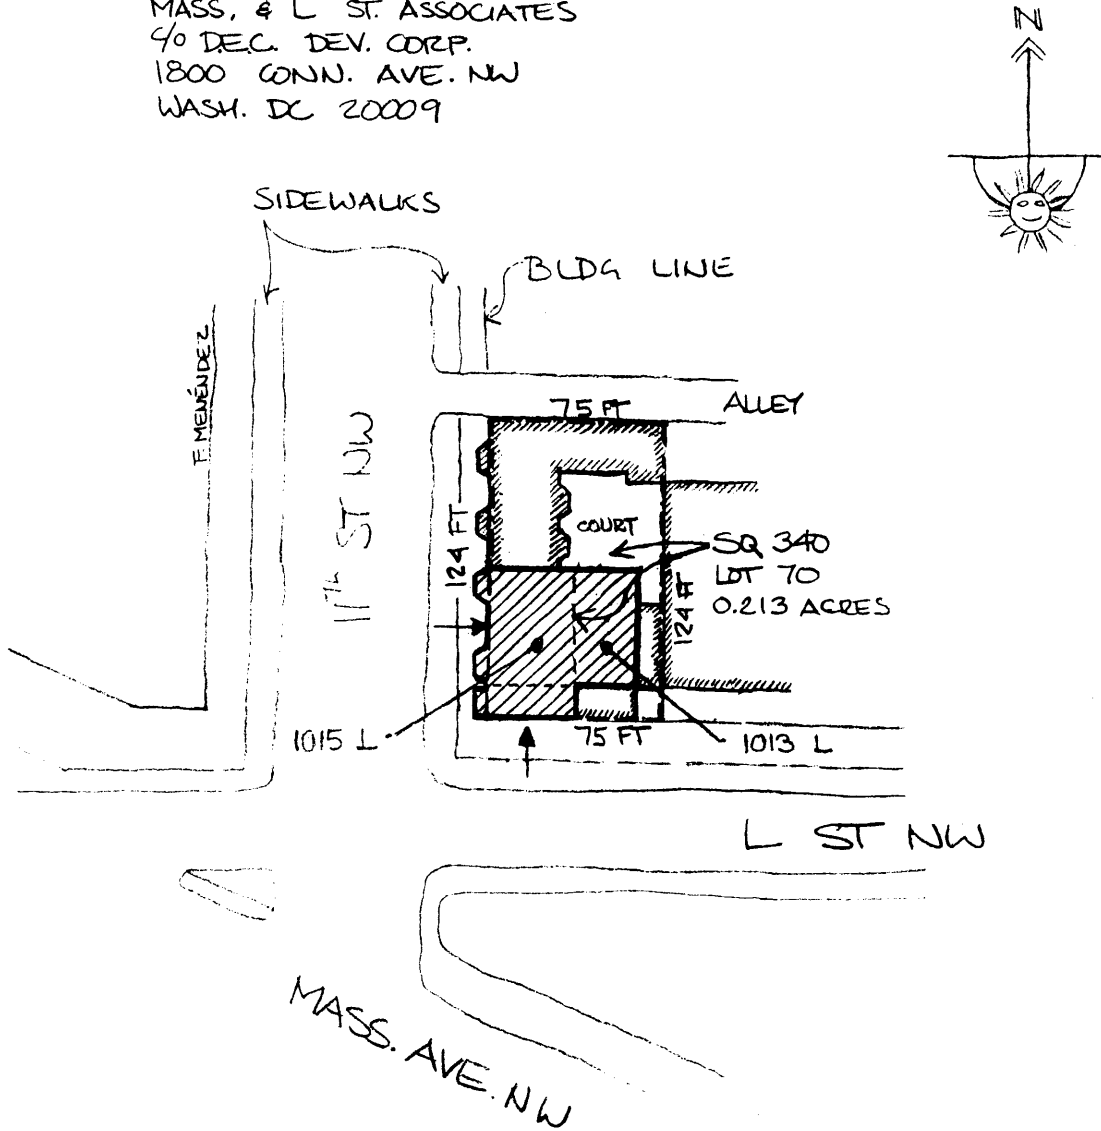 MASS. & L ST. ASSOCIATES
c/o D.E.C. DEV. CORP.
1800 CONN. AVE. NW
WASH. DC 20009
N
SIDEWALKS
BLDG LINE
F. MENÉNDEZ
11TH ST NW
75 FT
ALLEY
124 FT
COURT
SQ 340
LOT 70
0.213 ACRES
124 FT
1015 L
75 FT
1013 L
L ST NW
MASS. AVE. NW